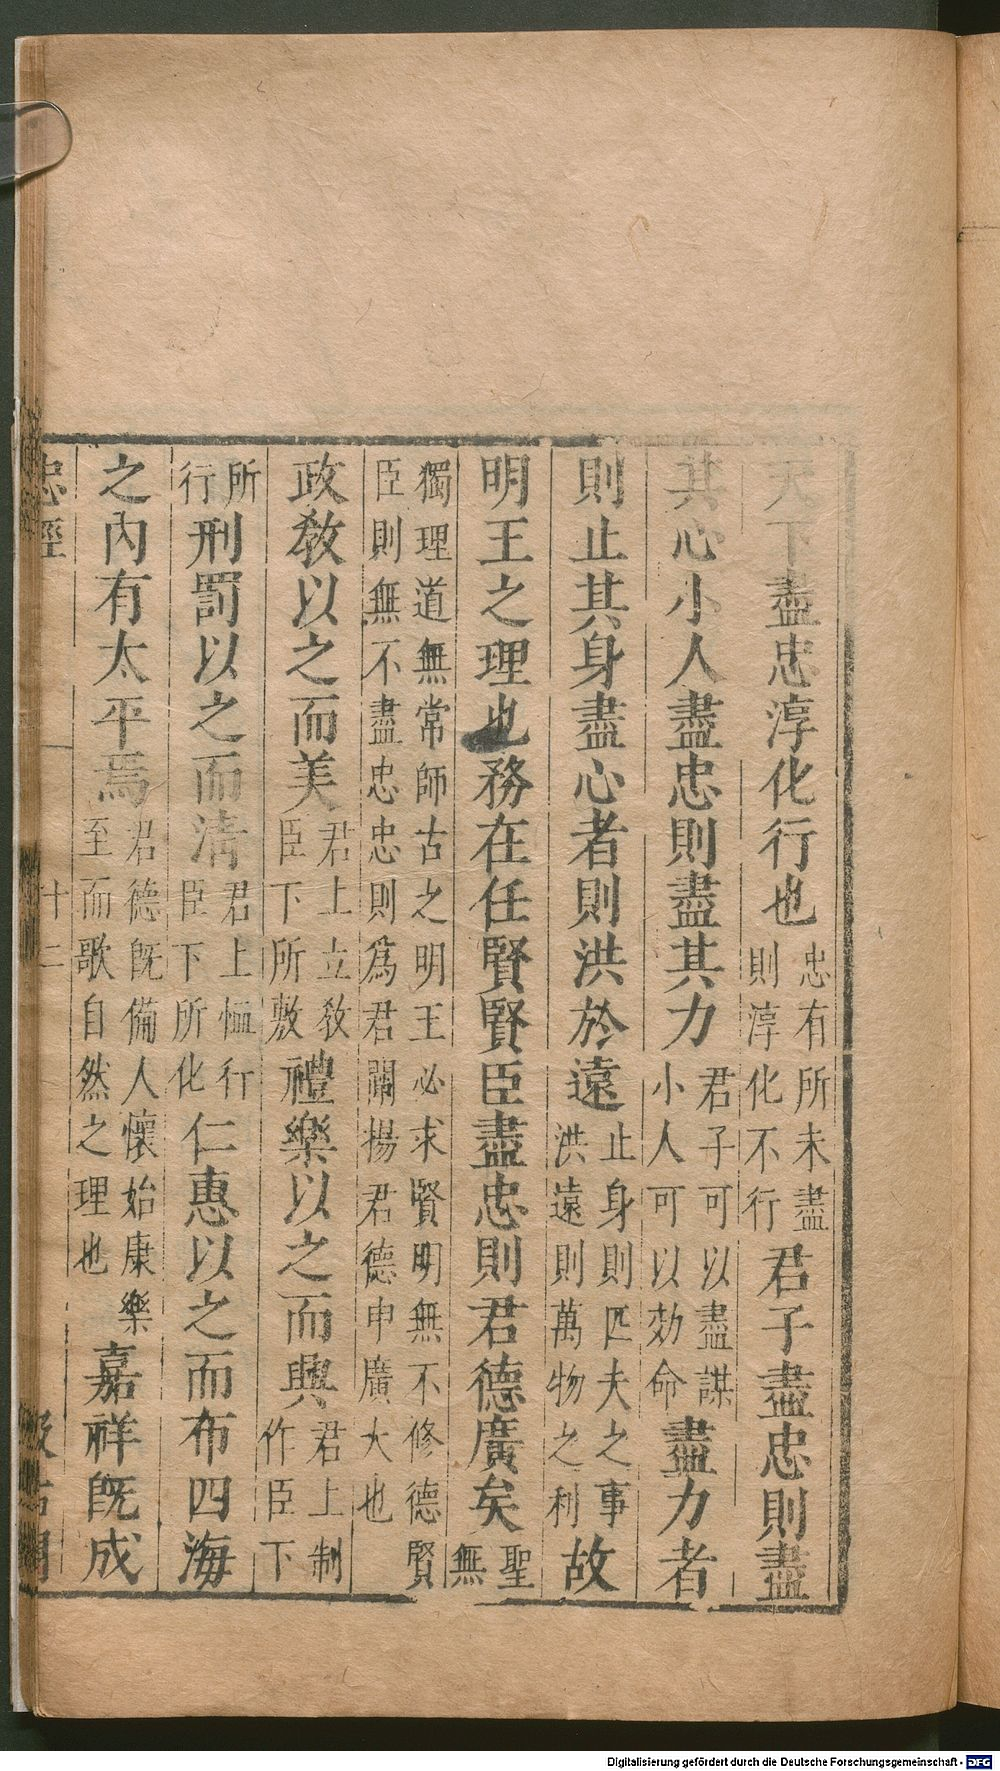 天下盡忠淳化行也忠有所未盡則淳化不行君子盡忠則盡
其心小人盡忠則盡其力君子可以盡謀小人可以効命盡力者
則止其身盡心者則洪於遠止身則匹夫之事洪遠則萬物之利故
明王之理也務在任賢賢臣盡忠則君德廣矣聖無
獨理道無常師古之明王必求賢明無不修德賢臣則無不盡忠忠則爲君闡揚君德申廣大也
政教以之而美君上立教臣下所敷禮樂以之而興君上制作臣下
所行刑罰以之而清君上恤行臣下所化仁惠以之而布四海
之內有太平焉君德旣備人懷始康樂至而歌自然之理也嘉祥旣成
忠經 十二
Digitalisierung gefördert durch die Deutsche Forschungsgemeinschaft - DFG